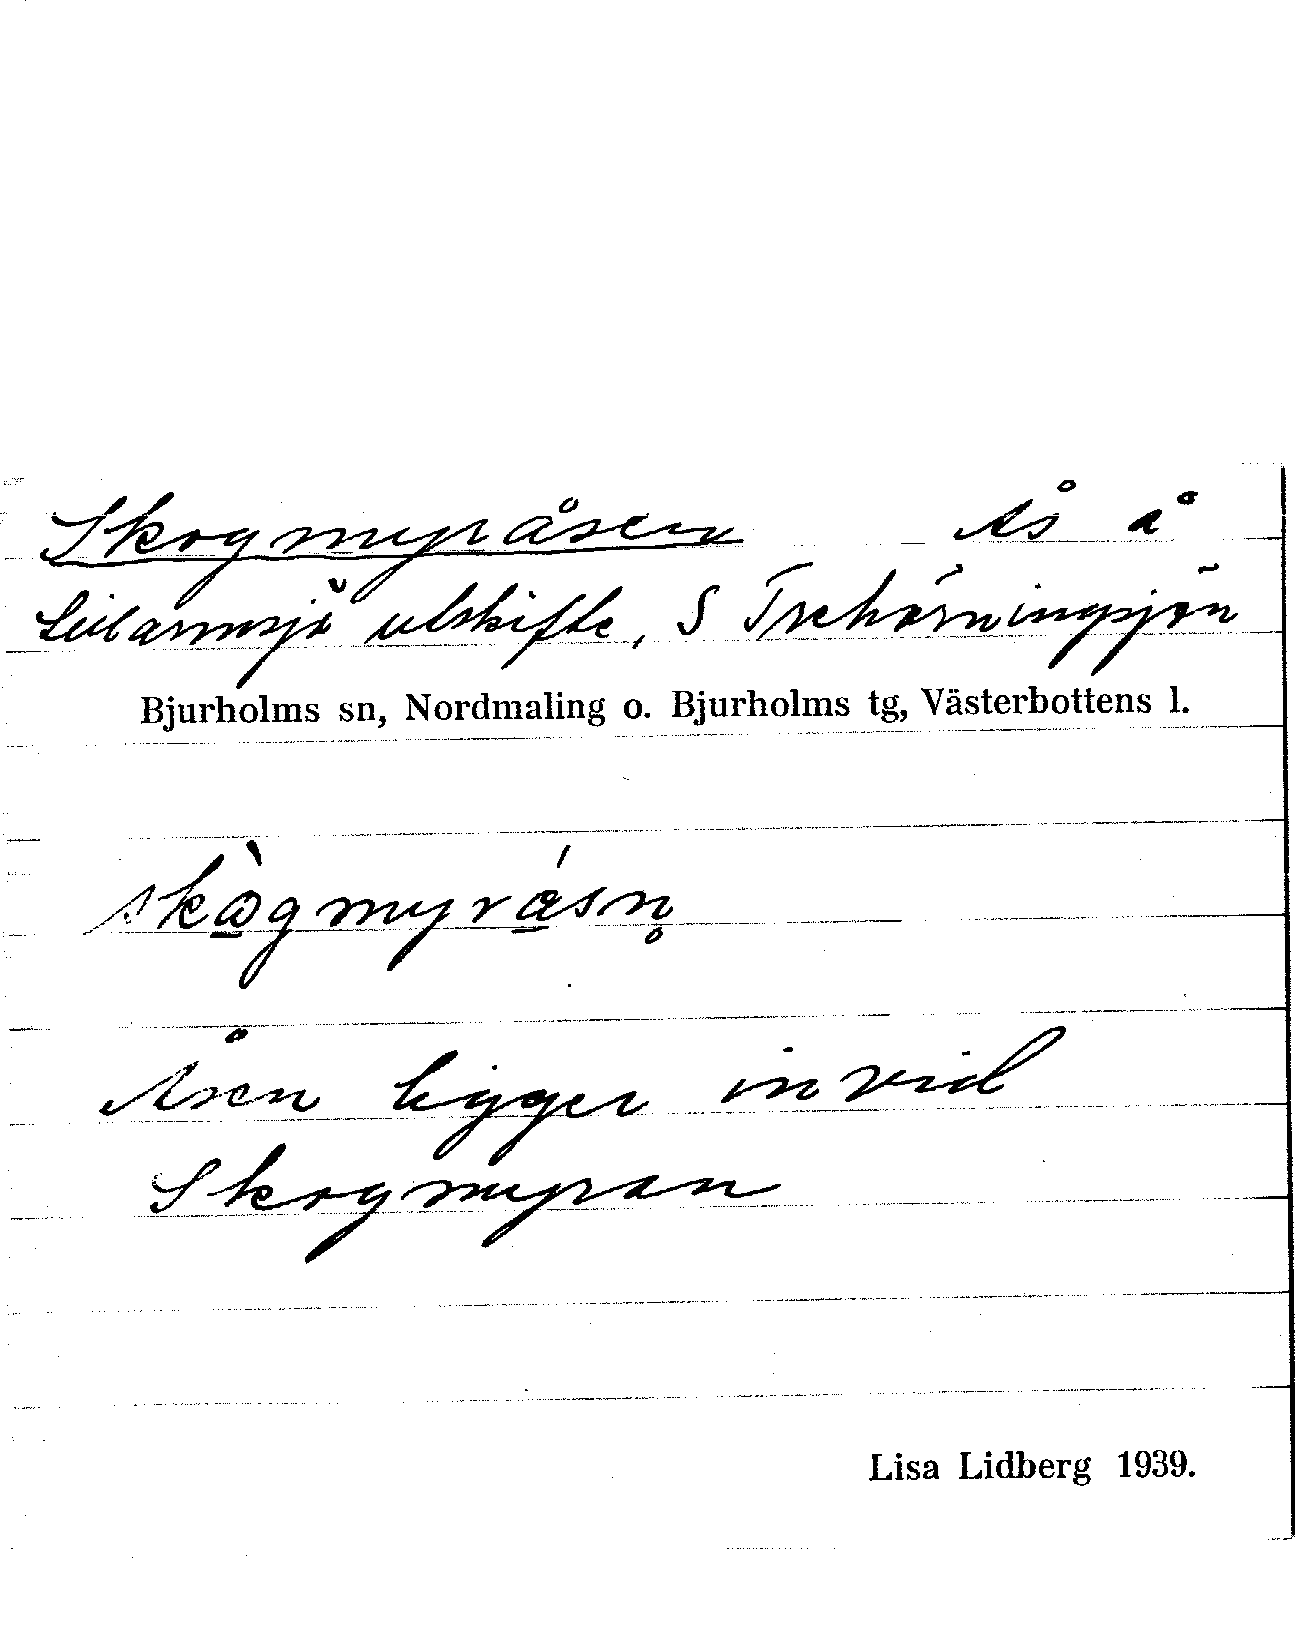 Skogmyråsen Ås å
Lillarmsjö utskifte, S Trehörningsjön
Bjurholms sn, Nordmaling o. Bjurholms tg, Västerbottens l.
Åsen ligger invid
Skogmyran
Lisa Lidberg 1939.